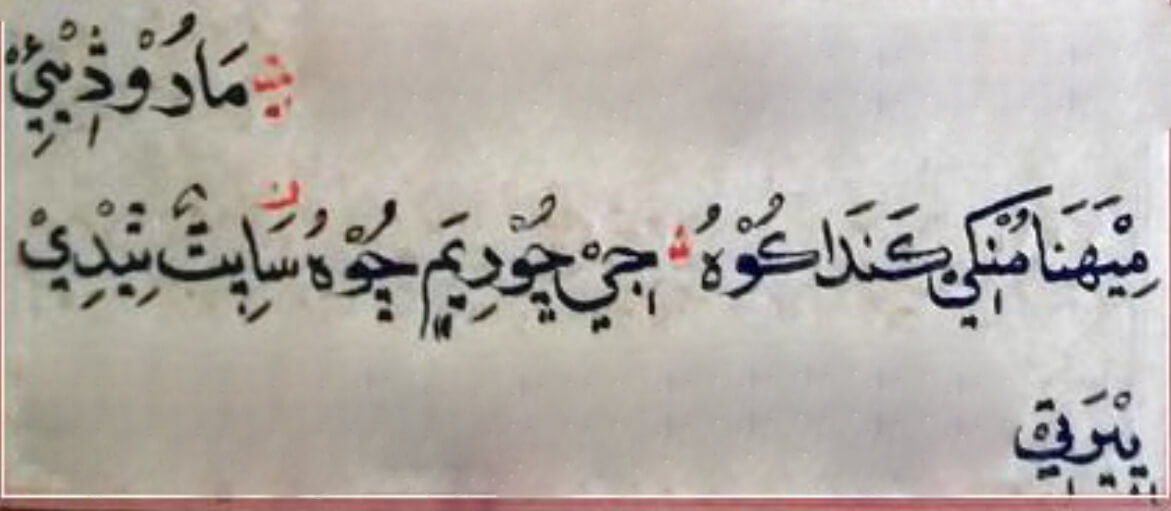 مَادُوْڎِيْئِيْ
مِيْهَنَا مُنْكِيْ كَنَدَا كُوْهُ جِيْ چُوْرِيَمِ چُوْهُ سَابِتْ تِيْدِيْ
پِيْرَتِيْ